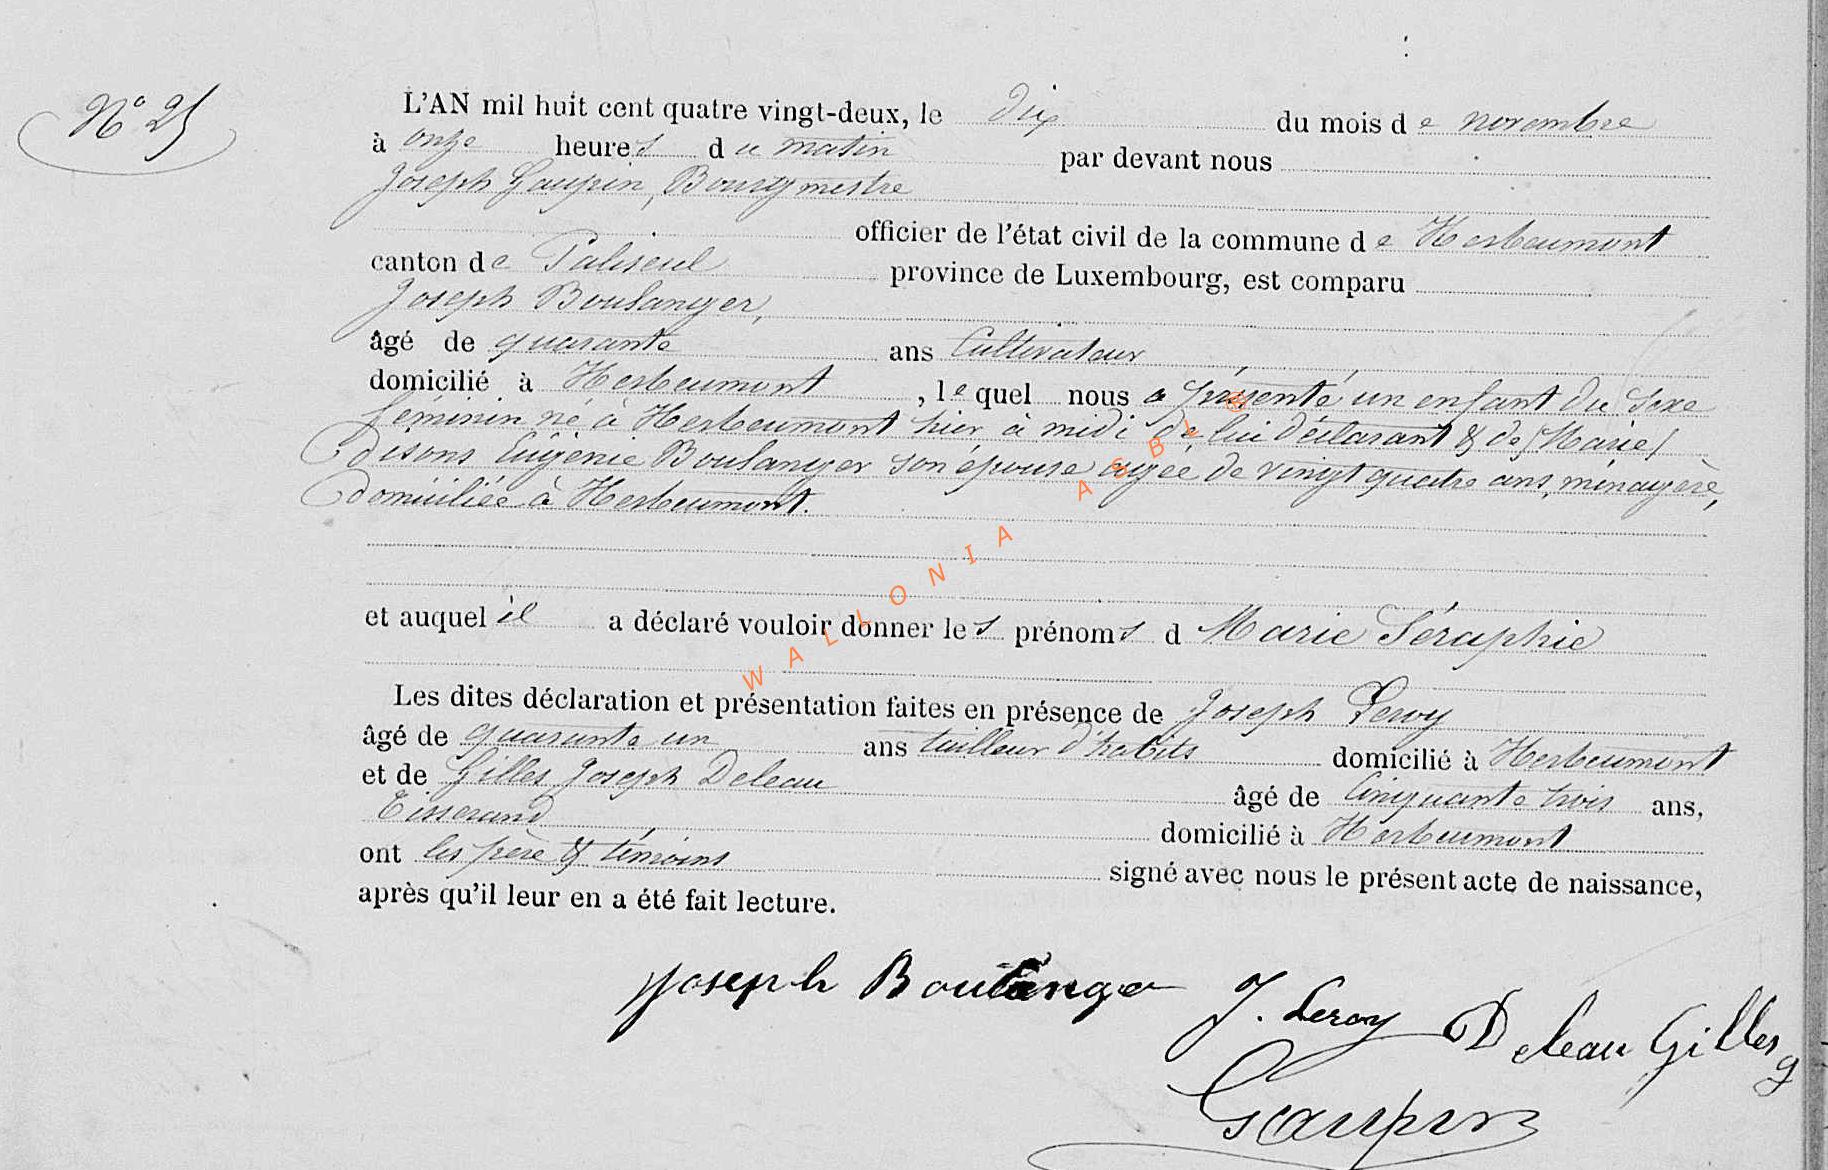 N° 25
L'AN mil huit cent quatre vingt-deux, le dix du mois de novembre
à onze heures du matin par devant nous
Joseph Gaupin, Bourgmestre
officier de l'état civil de la commune de Herbeumont
canton de Paliseul province de Luxembourg, est comparu
Joseph Boulanger,
âgé de quarante ans Cultivateur
domicilié à Herbeumont, lequel nous a présenté un enfant du sexe
féminin né à Herbeumont hier à midi de lui déclarant & de (Marie)
disons Eugénie Boulanger son épouse agée de vingt quatre ans, ménagère,
domiciliée à Herbeumont.
et auquel il a déclaré vouloir donner les prénoms d Marie Séraphie
Les dites déclaration et présentation faites en présence de Joseph Leroy
âgé de quarante un ans tailleur d'habits domicilié à Herbeumont
et de Gilles Joseph Deleau âgé de Cinquante trois ans,
Tisserand domicilié à Herbeumont
ont les père & témoins signé avec nous le présent acte de naissance,
après qu'il leur en a été fait lecture.
Joseph Boulanger J. Leroy Deleau Gilles J
Gaupin
WALLONIA ASBL ©